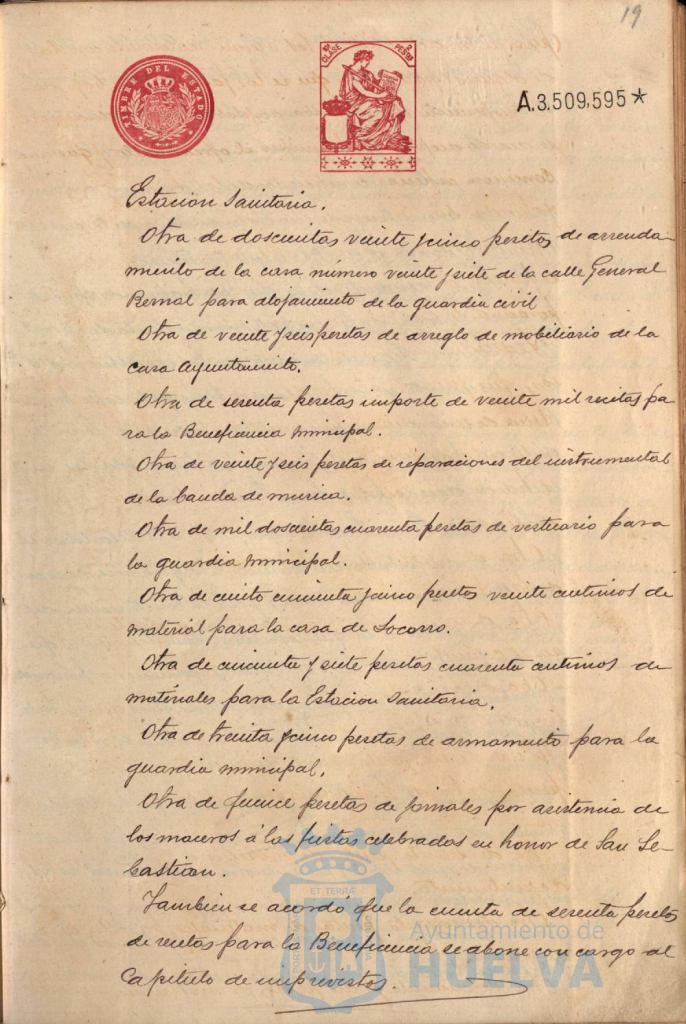 19
TIMBRE DEL ESTADO
10ª CLASE
2 PESETAS
A.3,509,595*
Estacion Sanitaria.
Otra de doscientas veinte y cinco pesetas de arrenda-
miento de la casa número veinte y siete de la calle General
Bernal para alojamiento de la guardia civil
Otra de veinte y seis pesetas de arreglo de mobiliario de la
casa Ayuntamiento.
Otra de sesenta pesetas importe de veinte mil recetas pa
ra la Beneficencia municipal.
Otra de veinte y seis pesetas de reparaciones del instrumental
de la banda de musica.
Otra de mil doscientas cuarenta pesetas de vestuario para
la guardia municipal.
Otra de ciento cincuenta y cinco pesetas veinte centimos de
material para la casa de Socorro.
Otra de cincuenta y siete pesetas cuarenta centimos de
materiales para la Estacion Sanitaria.
Otra de treinta y cinco pesetas de armamento para la
guardia municipal.
Otra de quince pesetas de jornales por asistencia de
los maceros á las fiestas celebradas en honor de San Se-
bastian.
Tambien se acordó que la cuenta de sesenta pesetas
de recetas para la Beneficencia se abone con cargo al
Capitulo de imprevistos.
ET TERRÆ
Ayuntamiento de
HUELVA